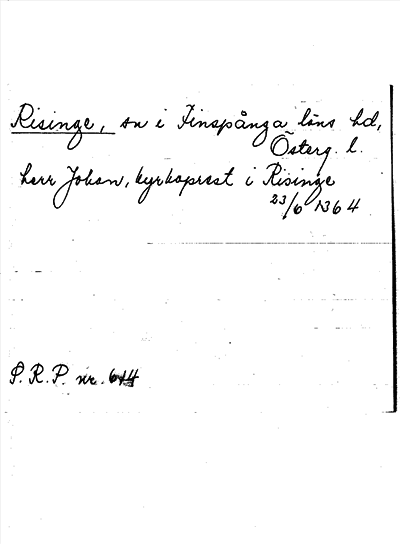 Risinge, sn i Finspånga läns hd,
Österg. l.
herr Johan, kyrkoprest i Risinge
23/6 1364
S. R. P. nr.